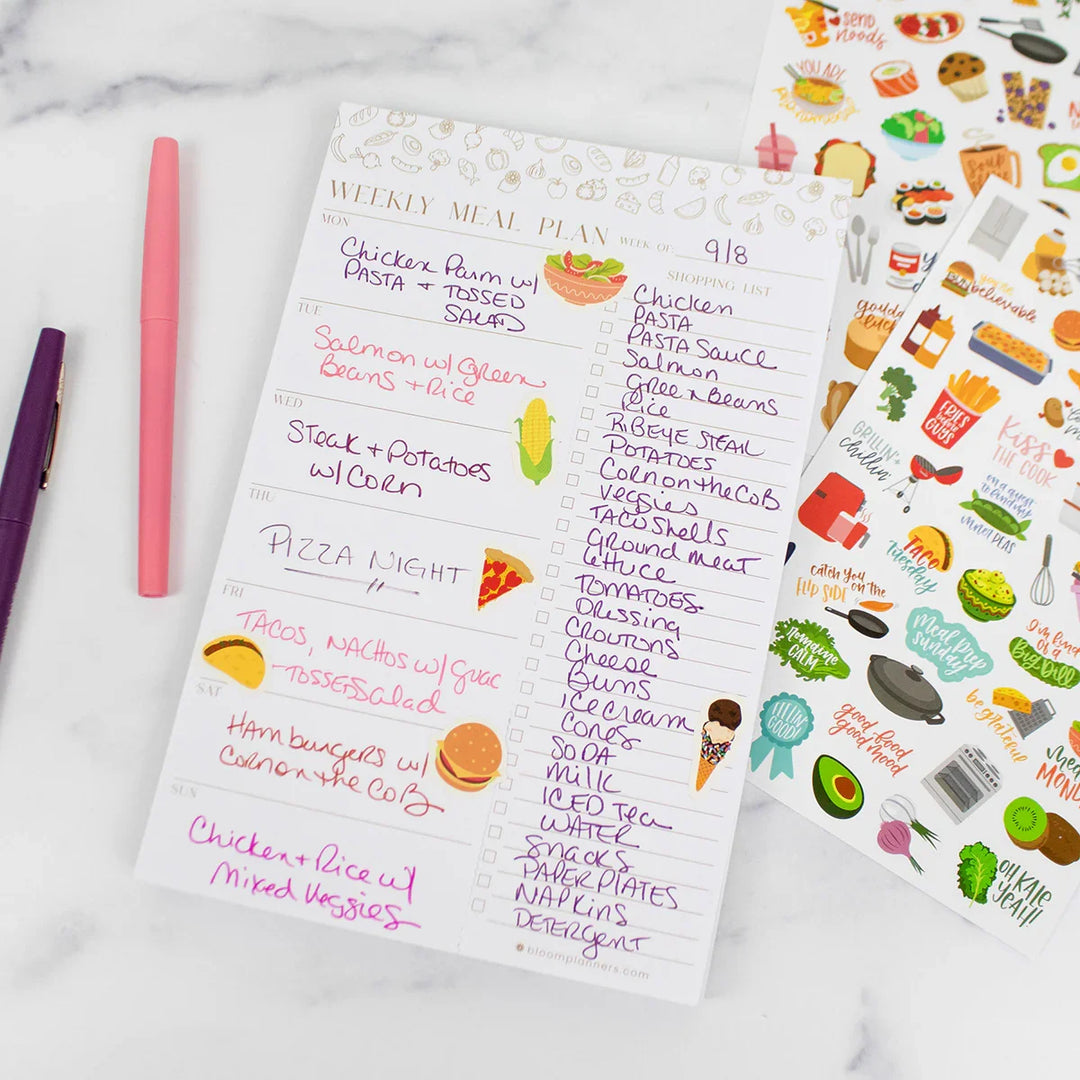 WEEKLY MEAL PLAN
WEEK OF: 9/8
MON
Chicken Parm w/
PASTA + TOSSED
SALAD
TUE
Salmon w/ Green
Beans + Rice
WED
Steak + Potatoes
w/ CORN
THU
PIZZA NIGHT
FRI
TACOS, NACHOS w/ Guac
-TOSSED Salad
SAT
HAMburgers w/
Corn on the CoB
SUN
Chicken + Rice w/
Mixed Veggies
SHOPPING LIST
Chicken
PASTA
PASTA Sauce
Salmon
Green Beans
Rice
RIBEYE STEAK
POTATOES
Corn on the CoB
Veggies
TACO Shells
Ground meat
lettuce
TOMATOES
Dressing
CROUTONS
Cheese
Buns
ICE Cream
Cones
SODA
Milk
ICED Tea
WATER
Snacks
PAPER PLATES
NAPKINS
DETERgenT
bloomplanners.com
SEND
noods
YOU ARE
SOUP
gouda
you're
unbelievable
FRIES
before
GUYS
Kiss
THE COOK
GRILLIN' +
chillin'
on a quest
to find my
inner PEAS
TACO
TUESDAY
catch you on the
FLIP SIDE
Romaine
CALM
Meal Prep
Sunday
I'm kind
of a
Big Dill
FEELIN'
GOOD!
good food
good mood
be grateful
OH KALE
YEAH!